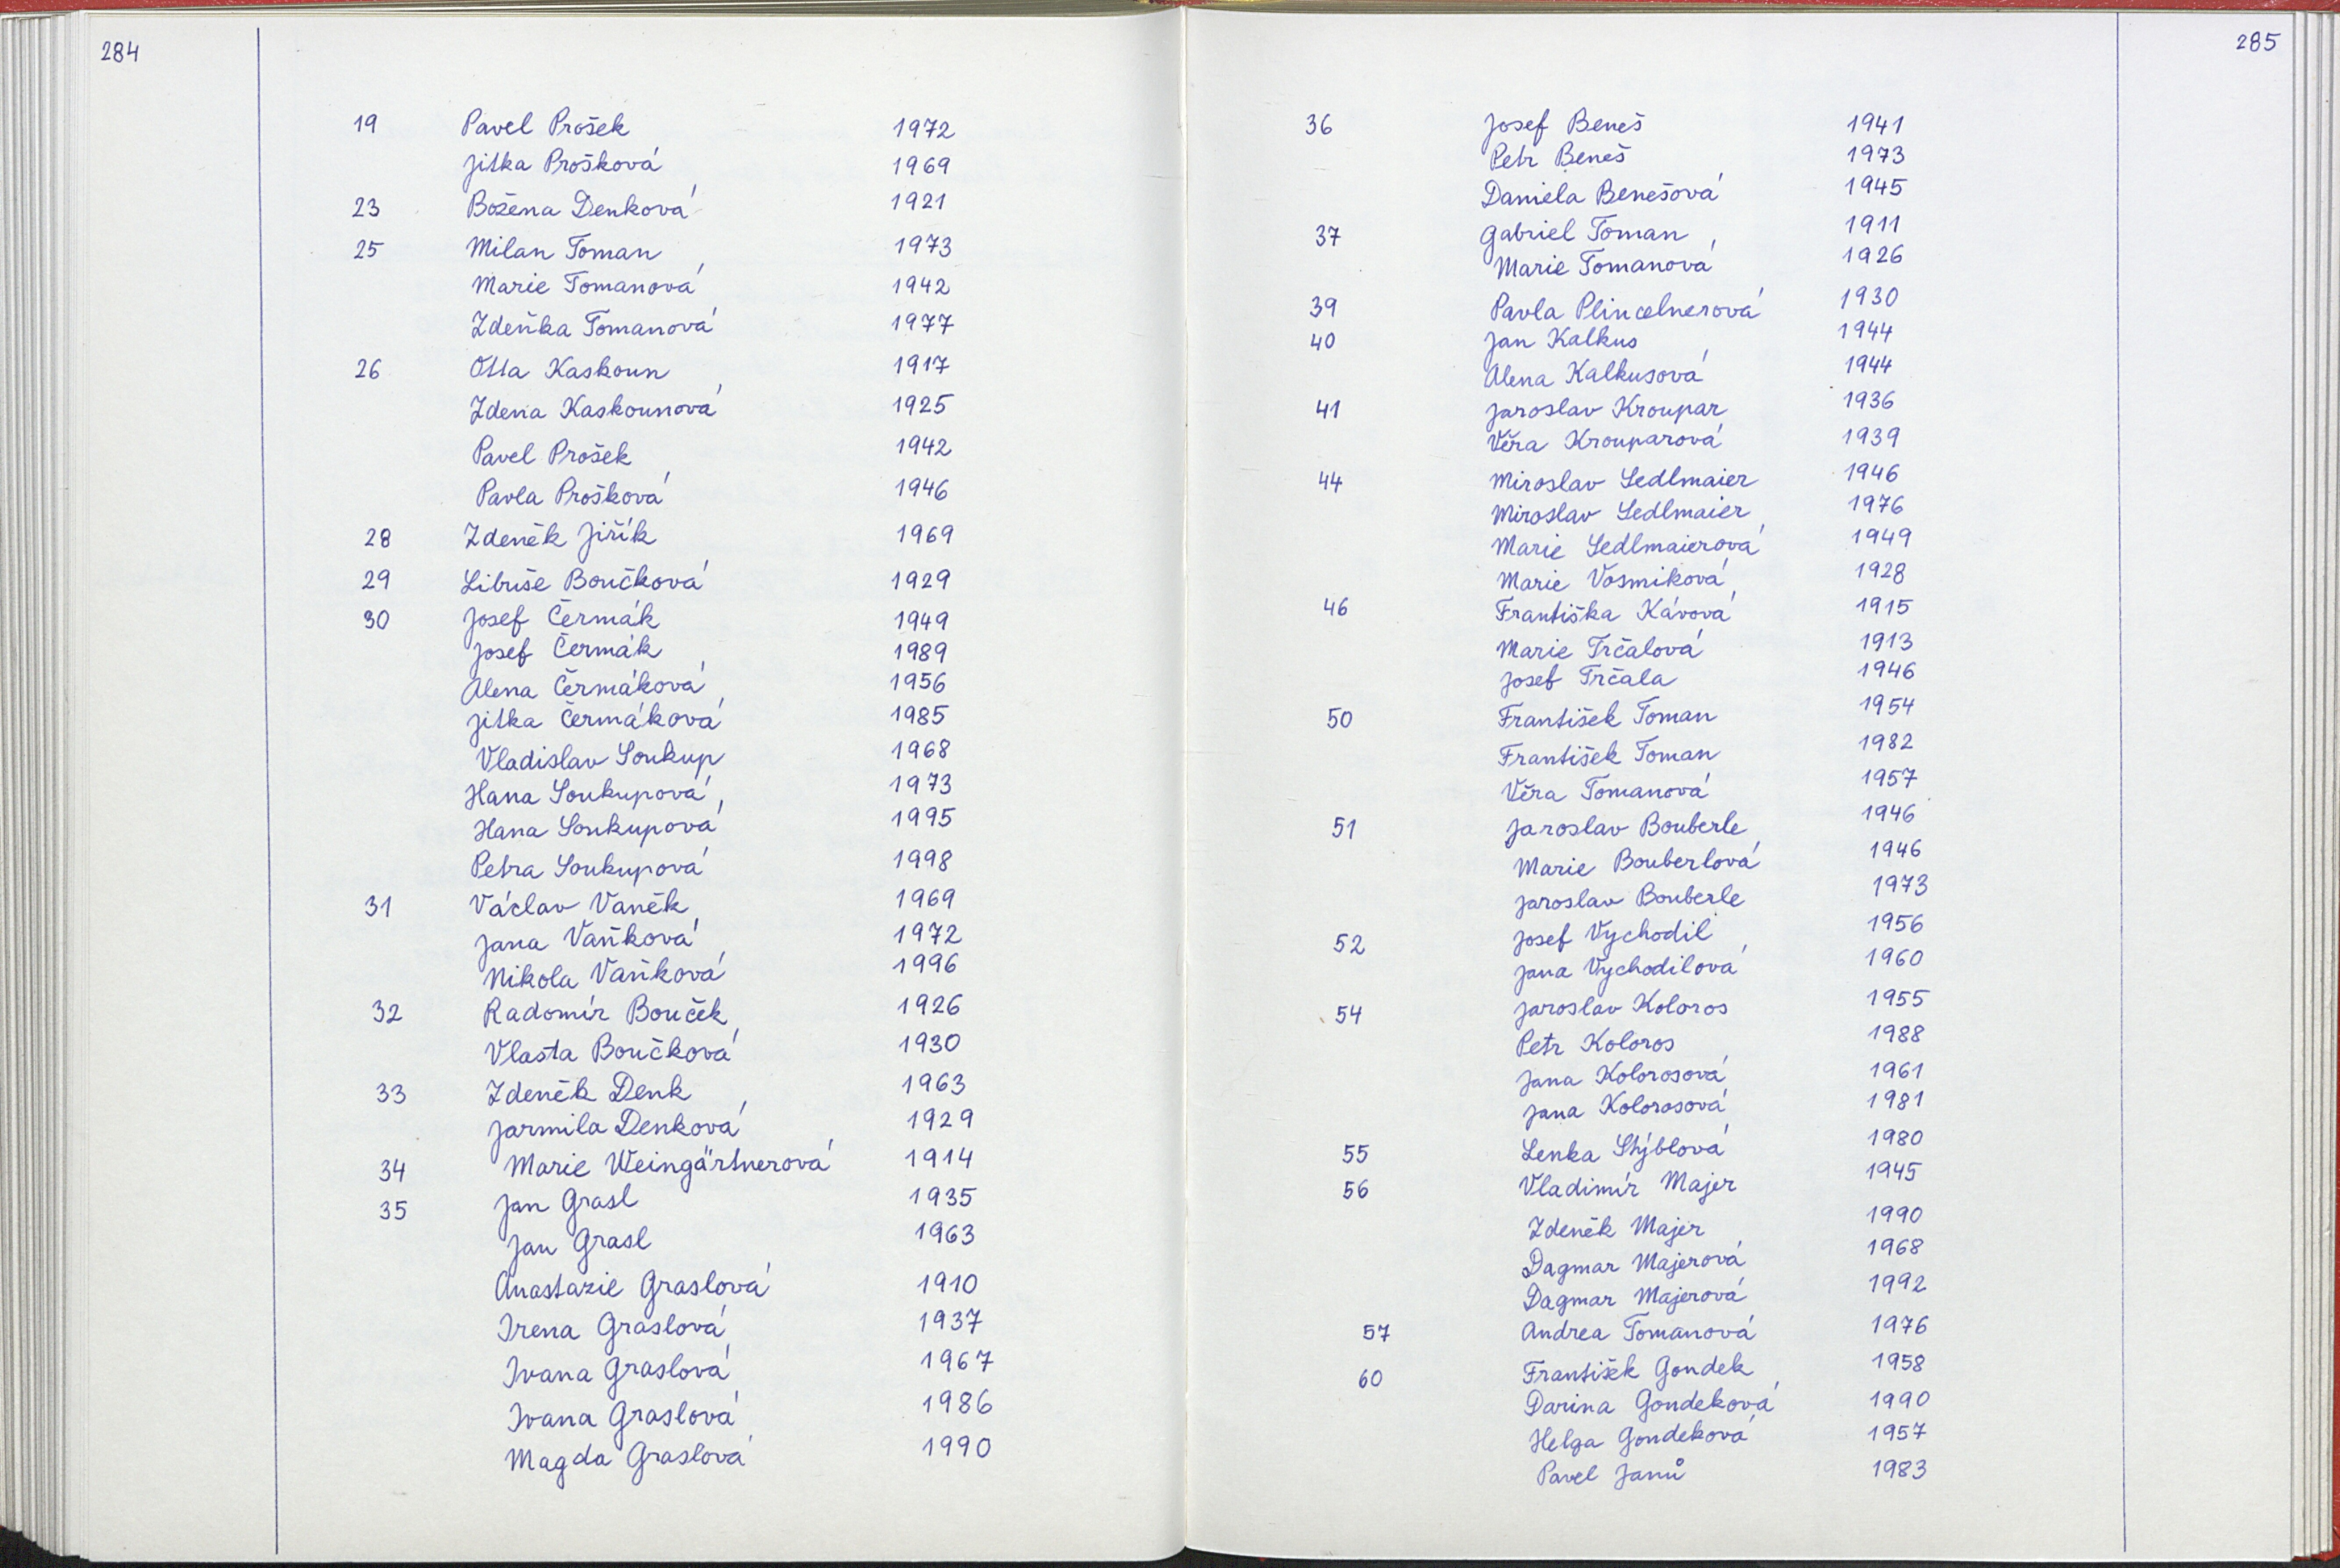 284
19 Pavel Prošek 1972
Jitka Prošková 1969
23 Božena Denková 1921
25 Milan Toman 1973
Marie Tomanová 1942
Zdeňka Tomanová 1977
26 Otta Kaskoun 1917
Zdena Kaskounová 1925
Pavel Prošek 1942
Pavla Prošková 1946
28 Zdeněk Jiřík 1969
29 Libuše Boučková 1929
30 Josef Čermák 1949
Josef Čermák 1989
Alena Čermáková 1956
Jitka Čermáková 1985
Vladislav Soukup 1968
Hana Soukupová 1973
Hana Soukupová 1995
Petra Soukupová 1998
31 Václav Vaněk 1969
Jana Vaňková 1972
Nikola Vaňková 1996
32 Radomír Bouček 1926
Vlasta Boučková 1930
33 Zdeněk Denk 1963
Jarmila Denková 1929
34 Marie Weingärtnerová 1914
35 Jan Grasl 1935
Jan Grasl 1963
Anastazie Graslová 1910
Irena Graslová 1937
Ivana Graslová 1967
Ivana Graslová 1986
Magda Graslová 1990
285
36 Josef Beneš 1941
Petr Beneš 1973
Daniela Benešová 1945
37 Gabriel Toman 1911
Marie Tomanová 1926
39 Pavla Plincelnerová 1930
40 Jan Kalkus 1944
Alena Kalkusová 1944
41 Jaroslav Kroupar 1936
Věra Krouparová 1939
44 Miroslav Sedlmaier 1946
Miroslav Sedlmaier 1976
Marie Sedlmaierová 1949
Marie Vosmiková 1928
46 Františka Kávová 1915
Marie Trčalová 1913
Josef Trčala 1946
50 František Toman 1954
František Toman 1982
Věra Tomanová 1957
51 Jaroslav Bouberle 1946
Marie Bouberlová 1946
Jaroslav Bouberle 1973
52 Josef Vychodil 1956
Jana Vychodilová 1960
54 Jaroslav Koloros 1955
Petr Koloros 1988
Jana Kolorosová 1961
Jana Kolorosová 1981
55 Lenka Stýblová 1980
56 Vladimír Majer 1945
Zdeněk Majer 1990
Dagmar Majerová 1968
Dagmar Majerová 1992
57 Andrea Tomanová 1976
60 František Gondek 1958
Darina Gondeková 1990
Helga Gondeková 1957
Pavel Janů 1983